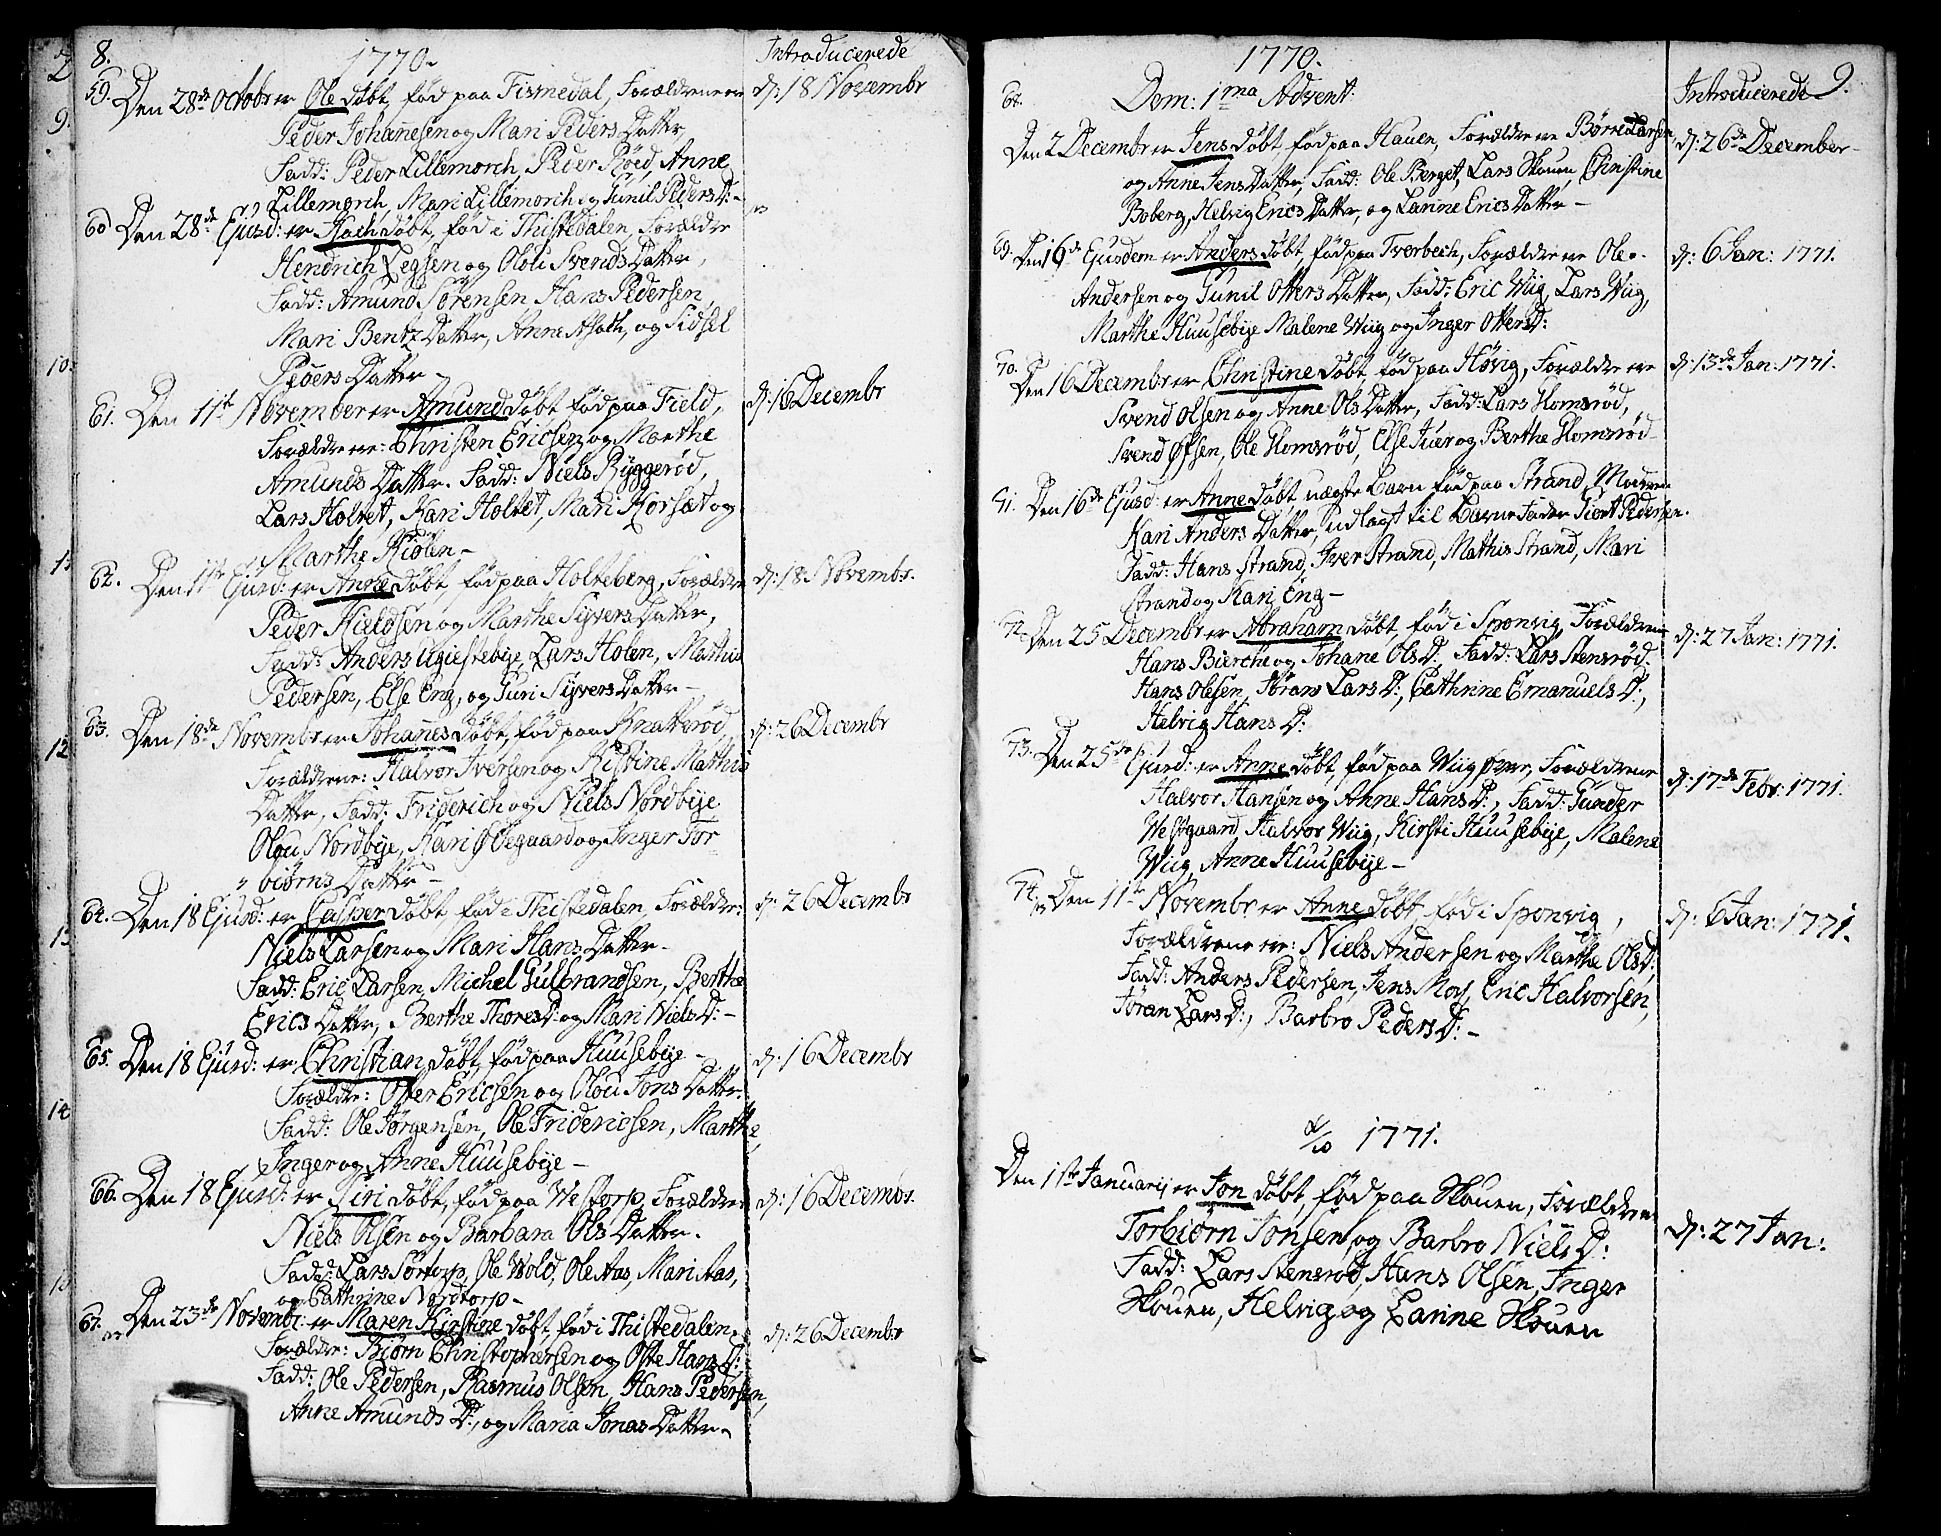 8.
1770.
Introducerede
59. Den 28de Octobr er Ole døbt, fød paa Fismedal, Forældrene ere
d: 18 Novembr
Peder Johannesen og Mari Peders Datter,
Fadd: Peder Lillemorch, Peder Röed, Anne
Lillemorch, Mari Lillemorch og Gunil Peders D:
60 Den 28de Ejusd: er døbt, fød i Thistedalen, Forældre
Hendrich og Olou Svends Datter,
Fadd: Amund Sörensen Hans Pedersen,
Mari Bentz Datter, Anne og Sidsel
Peders Datter
61. Den 11te November er Amund döbt fød paa Field,
d: 16 Decembr
Forældrene: Christen Ericsen og Marthe
Amunds Datter. Fadd: Niels Ryggeröd,
Lars Holtet, Kari Holtet, Mari Korsæt og
Marthe Kiölen
62. Den 11te Ejusd: er Anne døbt, fød paa Holteberg, Forældre
d: 18 Novembr.
Peder Kieldsen og Marthe Syvers Datter,
Fadd: Anders Ugiestebye, Lars Holen, Mathis
Pedersen, Else Eng, og Guri Syvers Datter
63. Den 18de Novembr er Johannes døbt, fød paa Knatteröd,
d: 26 Decembr
Forældrene: Halvor Iversen og Kistine Mathis
Datter, Fadd: Friderich og Niels Nordbye
Olou Nordbye, Kari Ödegaard og Inger Tor
" biörns Datter
64. Den 18 Ejusd: er Casper döbt, fød i Thistedalen, Forældre:
d: 26 Decembr
Niels Larsen og Mari Hans Datter
Fadd: Eric Larsen, Michel Gulbrandsen, Berthe
Erics Datter, Berthe Thores D: og Mari Niels D:
65. Den 18 Ejusd: er Christian döbt, fød paa Huusebye
d: 16 Decembr
Forældre: Otter Ericsen og Olou Jons Datter.
Fadd: Ole Jörgensen, Ole Fridericsen, Marthe,
Inger og Anne Huusebye
66. Den 18 Ejusd: er Siri döbt, fød paa Westorp, Forældre
d: 16 Decembr.
Niels Olsen og Barbara Ols Datter.
Fadd: Lars Sørtorp, Ole Wold, Ole Aas, Mari Aas,
og Cathrine Nordtorp
67. Den 23de Novembr: er Maren Kirstine döbt, fød i Thistedalen.
d: 26 Decembr
Forældre: Biörn Christophersen og Hans D:
Fadd: Ole Pedersen, Rasmus Olsen, Hans Pedersen,
Anne Amunds D:, og Maria Jonas Datter
9.
1770.
Introducerede
68. Dom: 1ma Advent:
Den 2 Decembr er Jens døbt, fød paa Hauen, Forældre ere Börre Larsen
d: 26de December
og Anne Jens Datter, Fadd: Ole Berget, Lars Skouen, Christine
Boberg, Helvig Erics Datter, og Larine Erics Datter
69. Den 16de Ejusdem er Anders döbt, fød paa Tverbech, Forældre ere Ole
d: 6 Jan: 1771.
Andersen og Gunil Otters Datter, Fadd: Eric Wiig, Lars Wiig,
Marthe Huusebye Malene Wiig og Inger Otters D:
70. Den 16 Decembr er Christine døbt, fød paa Høvig, Forældre ere
d: 13de Jan: 1771.
Svend Olsen og Anne Ols Datter, Fadd: Lars Homsröd,
Svend Olsen, Ole Homsröd, Else Juer og Berthe Homsröd
71. Den 16de Ejusd: er Anne döbt uægte Barn fød paa Strand, Moderen
Kari Anders Datter, udlagt til Barnefader Giert Pedersen.
Fadd: Hans Strand, Iver Strand, Mathis Strand, Mari
Strand og Kari Eng
72. Den 25 Decembr er Abraham döbt, fød i Sponvig, Forældrene
d: 27 Jan: 1771.
Hans Bierche og Johane Ols D:, Fadd: Lars Stensröd
Hans Olesen, Jöran Lars D:, Cathrine Emanuels D:,
Helvig Hans D:
73. Den 25de Ejusd: er Anne döbt, fød paa Wiig Forældrene
d: 17de Febr: 1771.
Halvor Hansen og Anne Hans D:, Fadd: Gunder
Westgaard, Halvor Wiig, Kirsti Huusebye, Malene
Wiig, Anne Huusebye
74. Den 11te Novembr er Anne döbt, fød i Sponvig,
d: 6 Jan: 1771.
Forældrene ere: Niels Andersen og Marthe Ols D:
Fadd: Anders Pedersen, Jens Moss, Eric Halvorsen,
Jöran Lars D:, Barbro Peders D:
1771.
Den 1ste Januarij er Jon döbt, fød paa Skouen, Forældrene
d: 27 Jan:
Torbiörn Jonsen og Barbro Niels D:
Fadd: Lars Stensröd, Hans Olsen, Inger
Skouen, Helvig og Larine Skouen